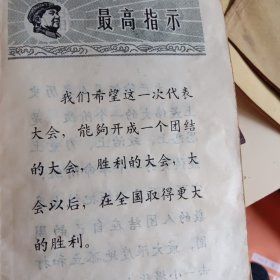 最高指示
我们希望这一次代表
大会，能夠开成一个团结
的大会，胜利的大会，大
会以后，在全国取得更大
的胜利。